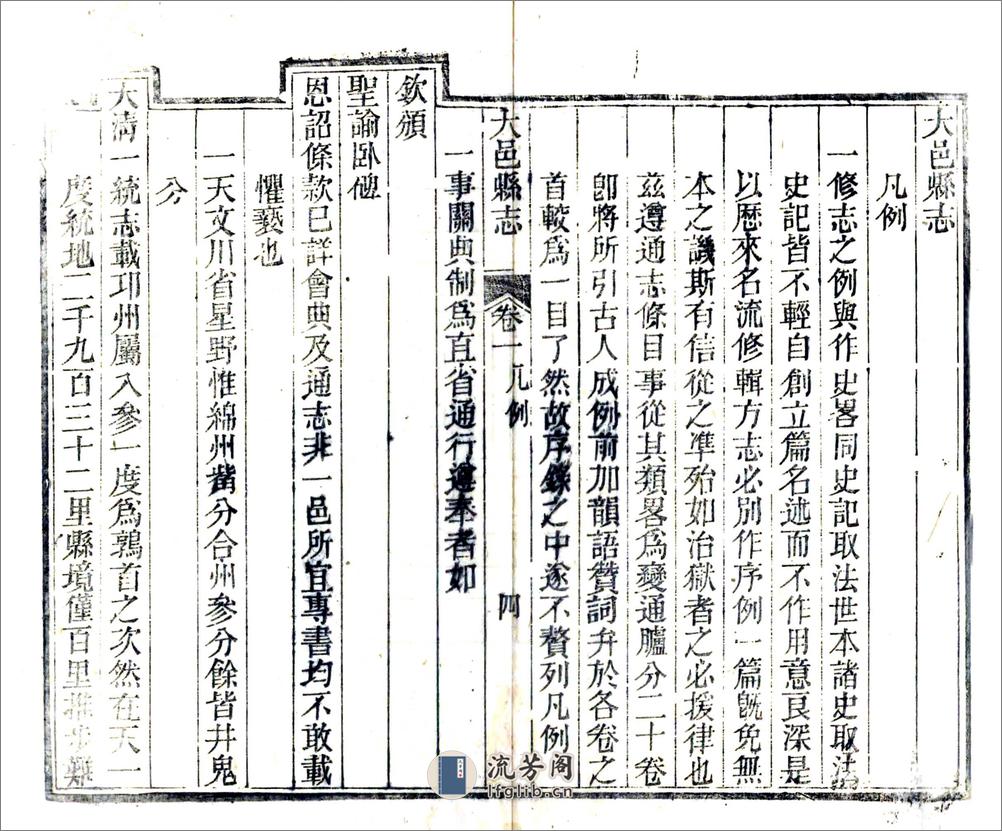 大邑縣志
凡例
一修志之例與作史畧同史記取法世本諸史取法
史記皆不輕自創立篇名述而不作用意良深是
以歴來名流修輯方志必別作序例一篇旣免無
本之譏斯有信從之凖殆如治獄者之必援律也
茲遵通志條目事從其類畧爲變通臚分二十卷
卽將所引古人成例前加韻語贊詞弁於各卷之
首較爲一目了然故序錄之中遂不贅列凡例
大邑縣志 卷一 凡例 四
一事關典制爲直省通行遵奉者如
欽頒
聖諭卧碑
恩詔條款已詳會典及通志非一邑所宜專書均不敢載
懼褻也
一天文川省星野惟綿州觜分合州參分餘皆井鬼
分
大清一統志載邛州屬入參一度爲鶉首之次然在天一
度統地二千九百三十二里縣境僅百里推步
流芳阁
lfglib.cn